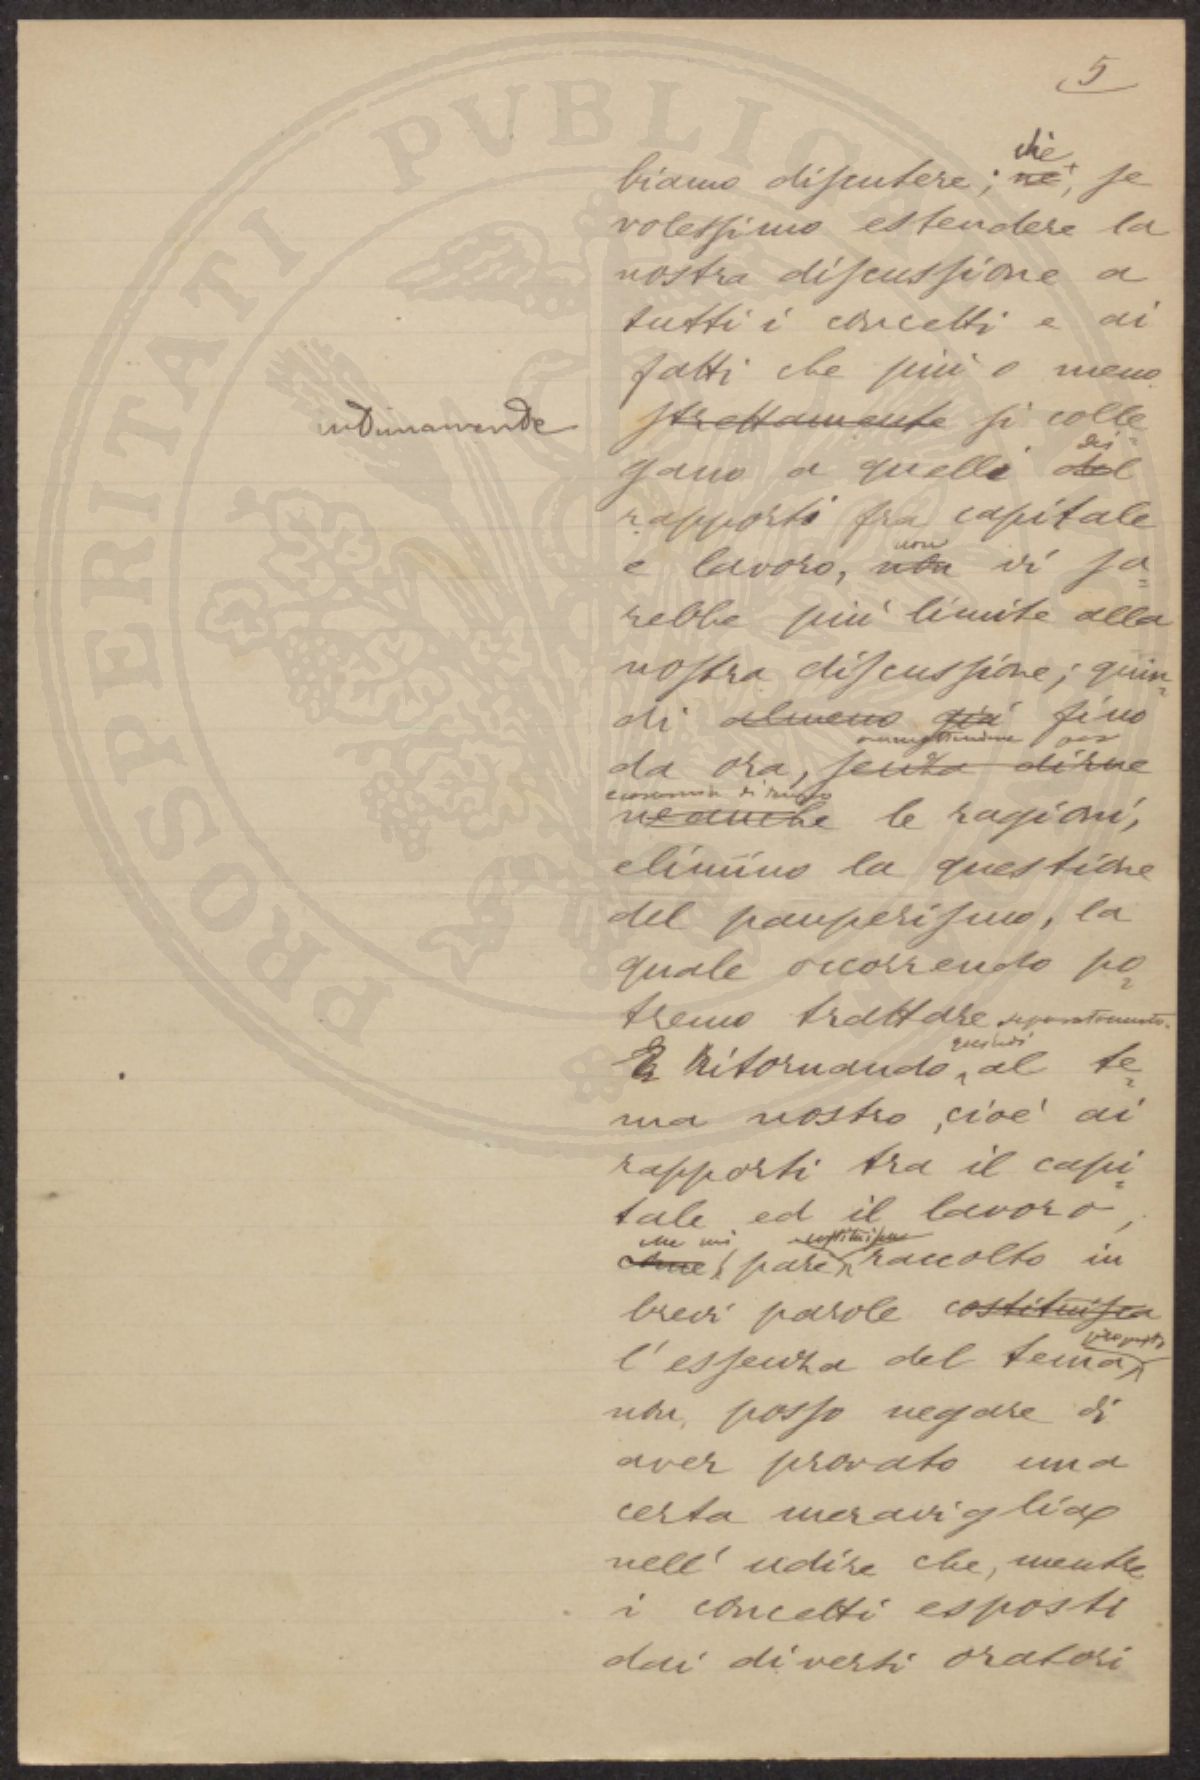 5
che
biamo discutere; nè, se
volessimo estendere la
nostra discussione a
tutti i concetti e ai
fatti che più o meno
intimamente
strettamente si colle=
dei
gano a quelli del
rapporti fra capitale
non
e lavoro, non vi sa=
rebbe più limite alla
nostra discussione; quin=
di almeno già fino
da ora, senza dirne
neanche le ragioni,
elimino la questione
del pauperismo, la
quale occorrendo po=
tremo trattare separatamente.
quindi
E Ritornando al te=
ma nostro, cioè ai
rapporti tra il capi=
tale ed il lavoro,
che mi costituisca
come pare raccolto in
brevi parole costituisca
proposto
l'essenza del tema
non posso negare di
aver provato una
certa meraviglia
nell'udire che, mentre
i concetti esposti
dai diversi oratori
PROSPERITATI PVBLICAE